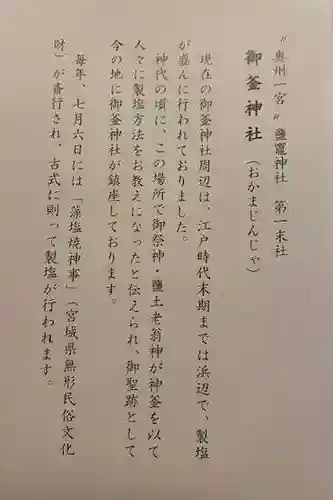 〝奥州一宮〟鹽竈神社　第一末社
御釜神社（おかまじんじゃ）
現在の御釜神社周辺は、江戸時代末期までは浜辺で、製塩
が盛んに行われておりました。
神代の頃に、この場所で御祭神・鹽土老翁神が神釜を以て
人々に製塩方法をお教えになったと伝えられ、御聖跡として
今の地に御釜神社が鎮座しております。
毎年、七月六日には「藻塩焼神事」（宮城県無形民俗文化
財）が斎行され、古式に則って製塩が行われます。